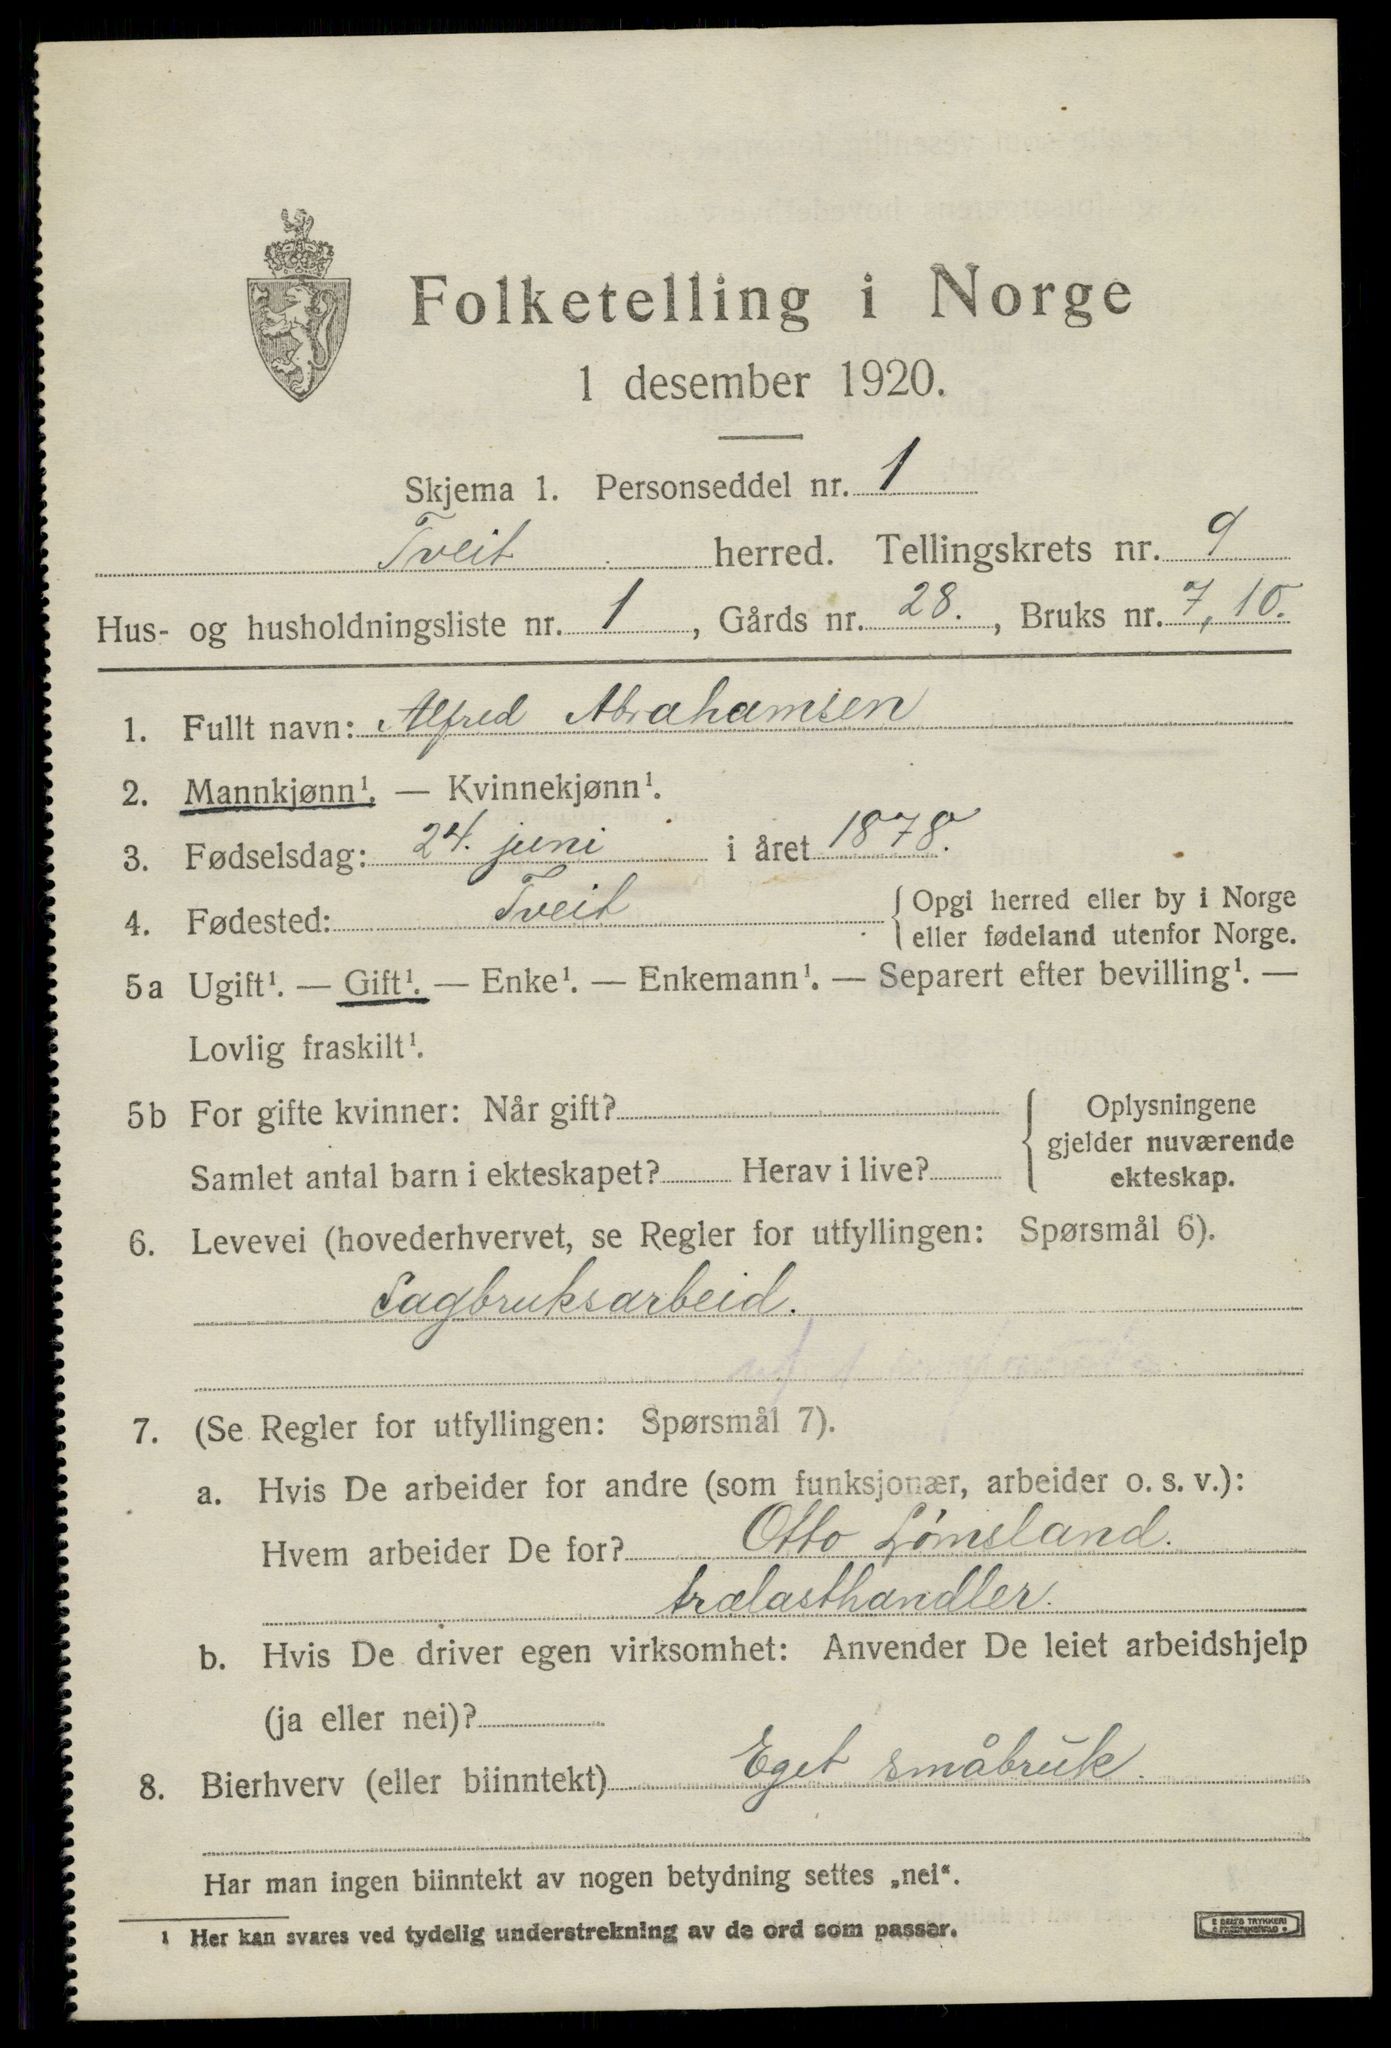 Folketelling i Norge
1 desember 1920.
Skjema 1. Personseddel nr. 1
Tveit herred. Tellingskrets nr. 9
Hus- og husholdningsliste nr. 1, Gårds nr. 28., Bruks nr. 7, 10.
1. Fullt navn: Alfred Abrahamsen
2. Mannkjønn¹. — Kvinnekjønn¹.
3. Fødselsdag: 24. juni i året 1878.
4. Fødested: Tveit { Opgi herred eller by i Norge
eller fødeland utenfor Norge.
5a Ugift¹. — Gift¹. — Enke¹. — Enkemann¹. — Separert efter bevilling¹. —
Lovlig fraskilt¹.
5b For gifte kvinner: Når gift? { Oplysningene
gjelder nuværende
Samlet antal barn i ekteskapet? Herav i live? ekteskap.
6. Levevei (hovederhvervet, se Regler for utfyllingen: Spørsmål 6).
Sagbruksarbeid.
7. (Se Regler for utfyllingen: Spørsmål 7).
a. Hvis De arbeider for andre (som funksjonær, arbeider o. s. v.):
Hvem arbeider De for? Otto Lømsland.
trælasthandler.
b. Hvis De driver egen virksomhet: Anvender De leiet arbeidshjelp
(ja eller nei)?
8. Bierhverv (eller biinntekt) Eget småbruk.
Har man ingen biinntekt av nogen betydning settes „nei“.
1 Her kan svares ved tydelig understrekning av de ord som passer.